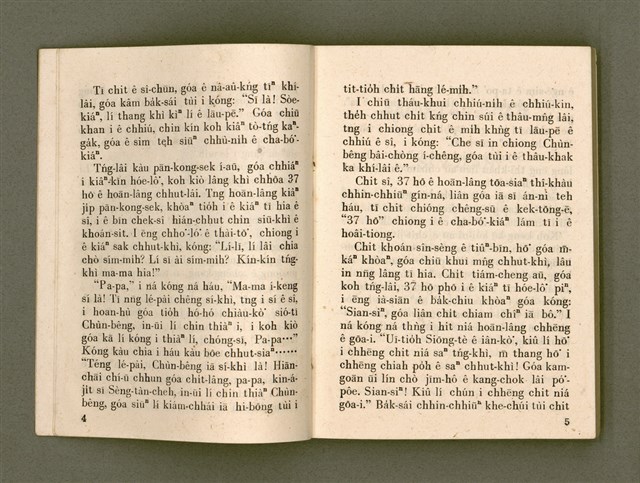 Tī chit ê sî-chūn, góa ê nā-aû-kńg tīⁿ khí-
lâi, góa kâm ba̍k-sái tùi i kóng: “Sí là! Sòe-
kiáⁿ, lí thang khì kìⁿ lí ê lāu-pē.” Góa chiū
khan i ê chhiú, chin kín koh kiâ tò-tńg kaⁿ-
ga̍k, góa ê sim teh siūⁿ chhù-nih ê cha-bó͘-
kiáⁿ.
Tńg-lâi kàu pān-kong-sek í-āū, góa chhiáⁿ
i kiâⁿ-kīn hóe-lô͘, koh kiò lâng khì chhōa 37
hō ê hoān-lâng chhut-lâi. Tng hoān-lâng kiâⁿ
ji̍p pān-kong-sek, khòaⁿ tio̍h i ê kiáⁿ tī hia ê
sî, i ê bīn chek-sî hián-chhut chin siū-khì ê
khoán-sit. I ēng chho͘-ló͘ ê thāi-tō͘, chiong i
ê kiáⁿ sak chhut-khì, kóng: “Lí-lī, lí lâi chia
chò sím-mih? Lí sī ài sím-mih? Kín-kín tńg-
khì ma-ma hia!”
“Pa-pa,” i ná kóng ná háu, “Ma-ma í-keng
sí là! Tī nn̄g lé-pài chêng sí-khì, tng i sí ê sî,
i hoan-hù góa tio̍h hó-hó chiàu-kò͘ sió-tī
Chùn-bêng, in-ūi lí chin thiàⁿ i, i koh kiò
góa kā lí kóng i thiàⁿ lí, chóng-sī, Pa-pa⋯”
Kóng kàu chia i háu kàu bōe chhut-siaⁿ⋯⋯
“Téng lé-pài, Chùn-bêng iā sí-khì là! Hiān-
chāi chí-ū chhun góa chi̍t-lâng, pa-pa, kin-á-
ji̍t sī Sèng-tàn-cheh, in-ūi lí chin thiàⁿ Chùn-
bêng, góa siūⁿ lí kiám-chhái iā hi-bōng tùi i
4
tit-tio̍h chi̍t hāng lé-mih.”
I chiū tháu-khui chhiú-nih ê chhiú-kin,
the̍h chhut chi̍t kńg chin súi ê thâu-mn̂g lâi,
tng i chiong chit ê mih khǹg tī lāu-pē ê
chhiú ê sî, i kóng: “Che sī in chiong Chùn-
bêng bâi-chòng í-chêng, góa tùi i ê thâu-khak
ka khí-lâi ê.”
Chit sî, 37 hō ê hoān-lâng tōa-siaⁿ thî-khàu
chhin-chhiūⁿ gín-ná, liân góa iā sī án-ni teh
háu, tī chit chióng chêng-sū ê kek-tōng-ē,
“37 hō” chiong i ê cha-bó͘-kiáⁿ lám tī i ê
hoâi-tiong.
Chit khoán sîn-sèng ê tiûⁿ-bīn, hō͘ góa m̄-
káⁿ khòaⁿ, góa chiū khui mn̂g chhut-khì, lâu
in nn̄g lâng tī hia. Chi̍t tiám-cheng aū, góa
koh tńg-lâi, 37 hō phō i ê kiáⁿ tī hóe-lô͘ piⁿ,
i ēng ià-siān ê ba̍k-chiu khòaⁿ góa kóng:
“Sian-siⁿ, góa liân chi̍t chiam chîⁿ iā bô.” I
ná kóng ná thǹg i hit niá hoān-lâng chhēng
ê gōa-i. “Ûi-tio̍h Siōng-tè ê iân-kò͘, kiû lí hō͘
i chhēng chit niá saⁿ tńg-khì, m̄ thang hō͘ i
chhēng chiah po̍h ê saⁿ chhut-khì! Góa kam-
goān ūi lín chò jīm-hô ê kang-chok lâi pó͘-
pôe. Sian-siⁿ! Kiû lí chún i chhēng chit niá
gōa-i.” Ba̍k-sái chhin-chhiūⁿ khe-chúi tùi chit
5